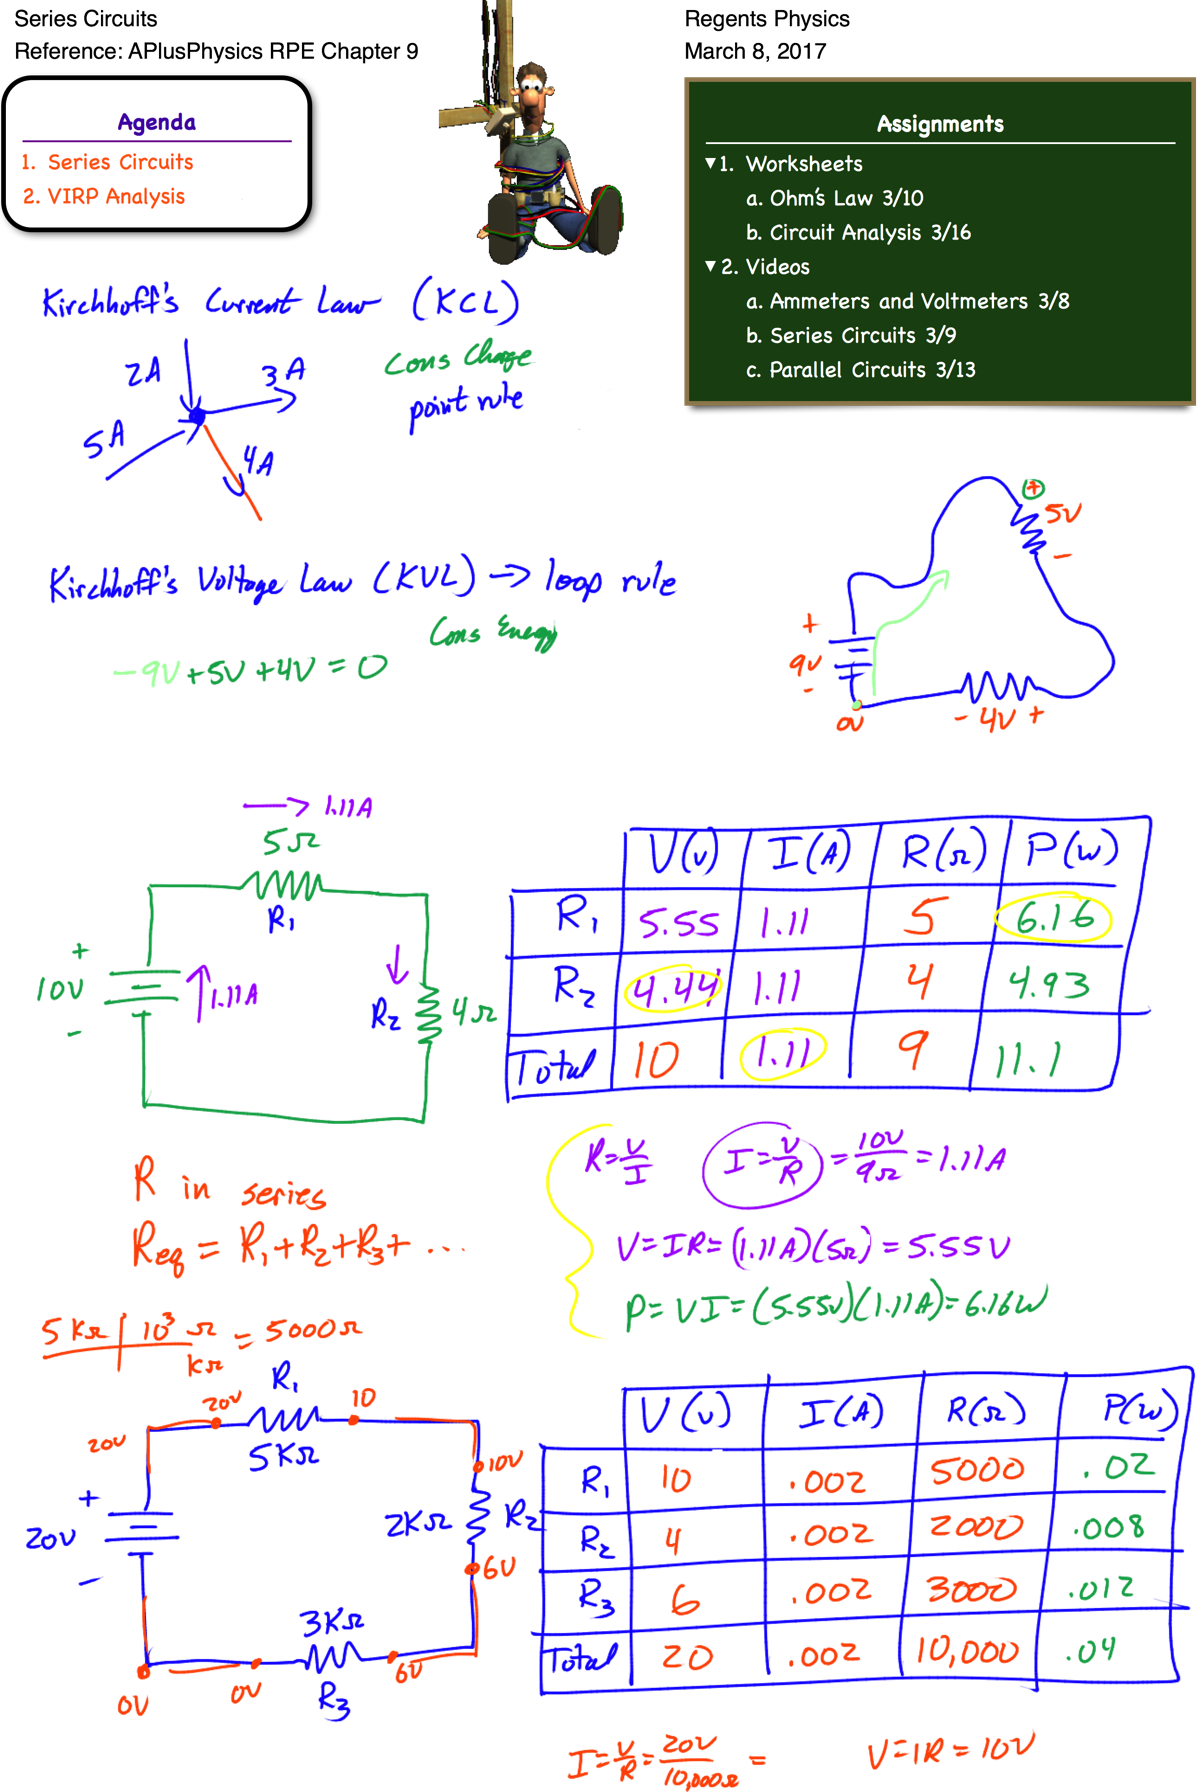 Series Circuits
Reference: APlusPhysics RPE Chapter 9
Regents Physics
March 8, 2017
Agenda
1. Series Circuits
2. VIRP Analysis
Assignments
▼1. Worksheets
a. Ohm's Law 3/10
b. Circuit Analysis 3/16
▼2. Videos
a. Ammeters and Voltmeters 3/8
b. Series Circuits 3/9
c. Parallel Circuits 3/13
Kirchhoff's Current Law (KCL)
Cons Charge
point rule
2A
3A
5A
4A
Kirchhoff's Voltage Law (KVL) → loop rule
Cons Energy
-9V+5V+4V=0
+
5V
-
+
9V
-
0V
- 4V +
→ 1.11A
5Ω
R1
+
10V
-
1.11A
R2
4Ω
V(V) I(A) R(Ω) P(W)
R1 5.55 1.11 5 6.16
R2 4.44 1.11 4 4.93
Total 10 1.11 9 11.1
R=V/I I=V/R=10V/9Ω=1.11A
V=IR=(1.11A)(5Ω)=5.55V
P=VI=(5.55V)(1.11A)=6.16W
R in series
Req = R1+R2+R3+ ...
5KΩ | 10³ Ω/KΩ = 5000Ω
R1
20V
10
20V
5KΩ
10V
+
20V
-
2KΩ
R2
6V
3KΩ
R3
0V
0V
6V
V(V) I(A) R(Ω) P(W)
R1 10 .002 5000 .02
R2 4 .002 2000 .008
R3 6 .002 3000 .012
Total 20 .002 10,000 .04
I=V/R=20V/10,000Ω =
V=IR=10V